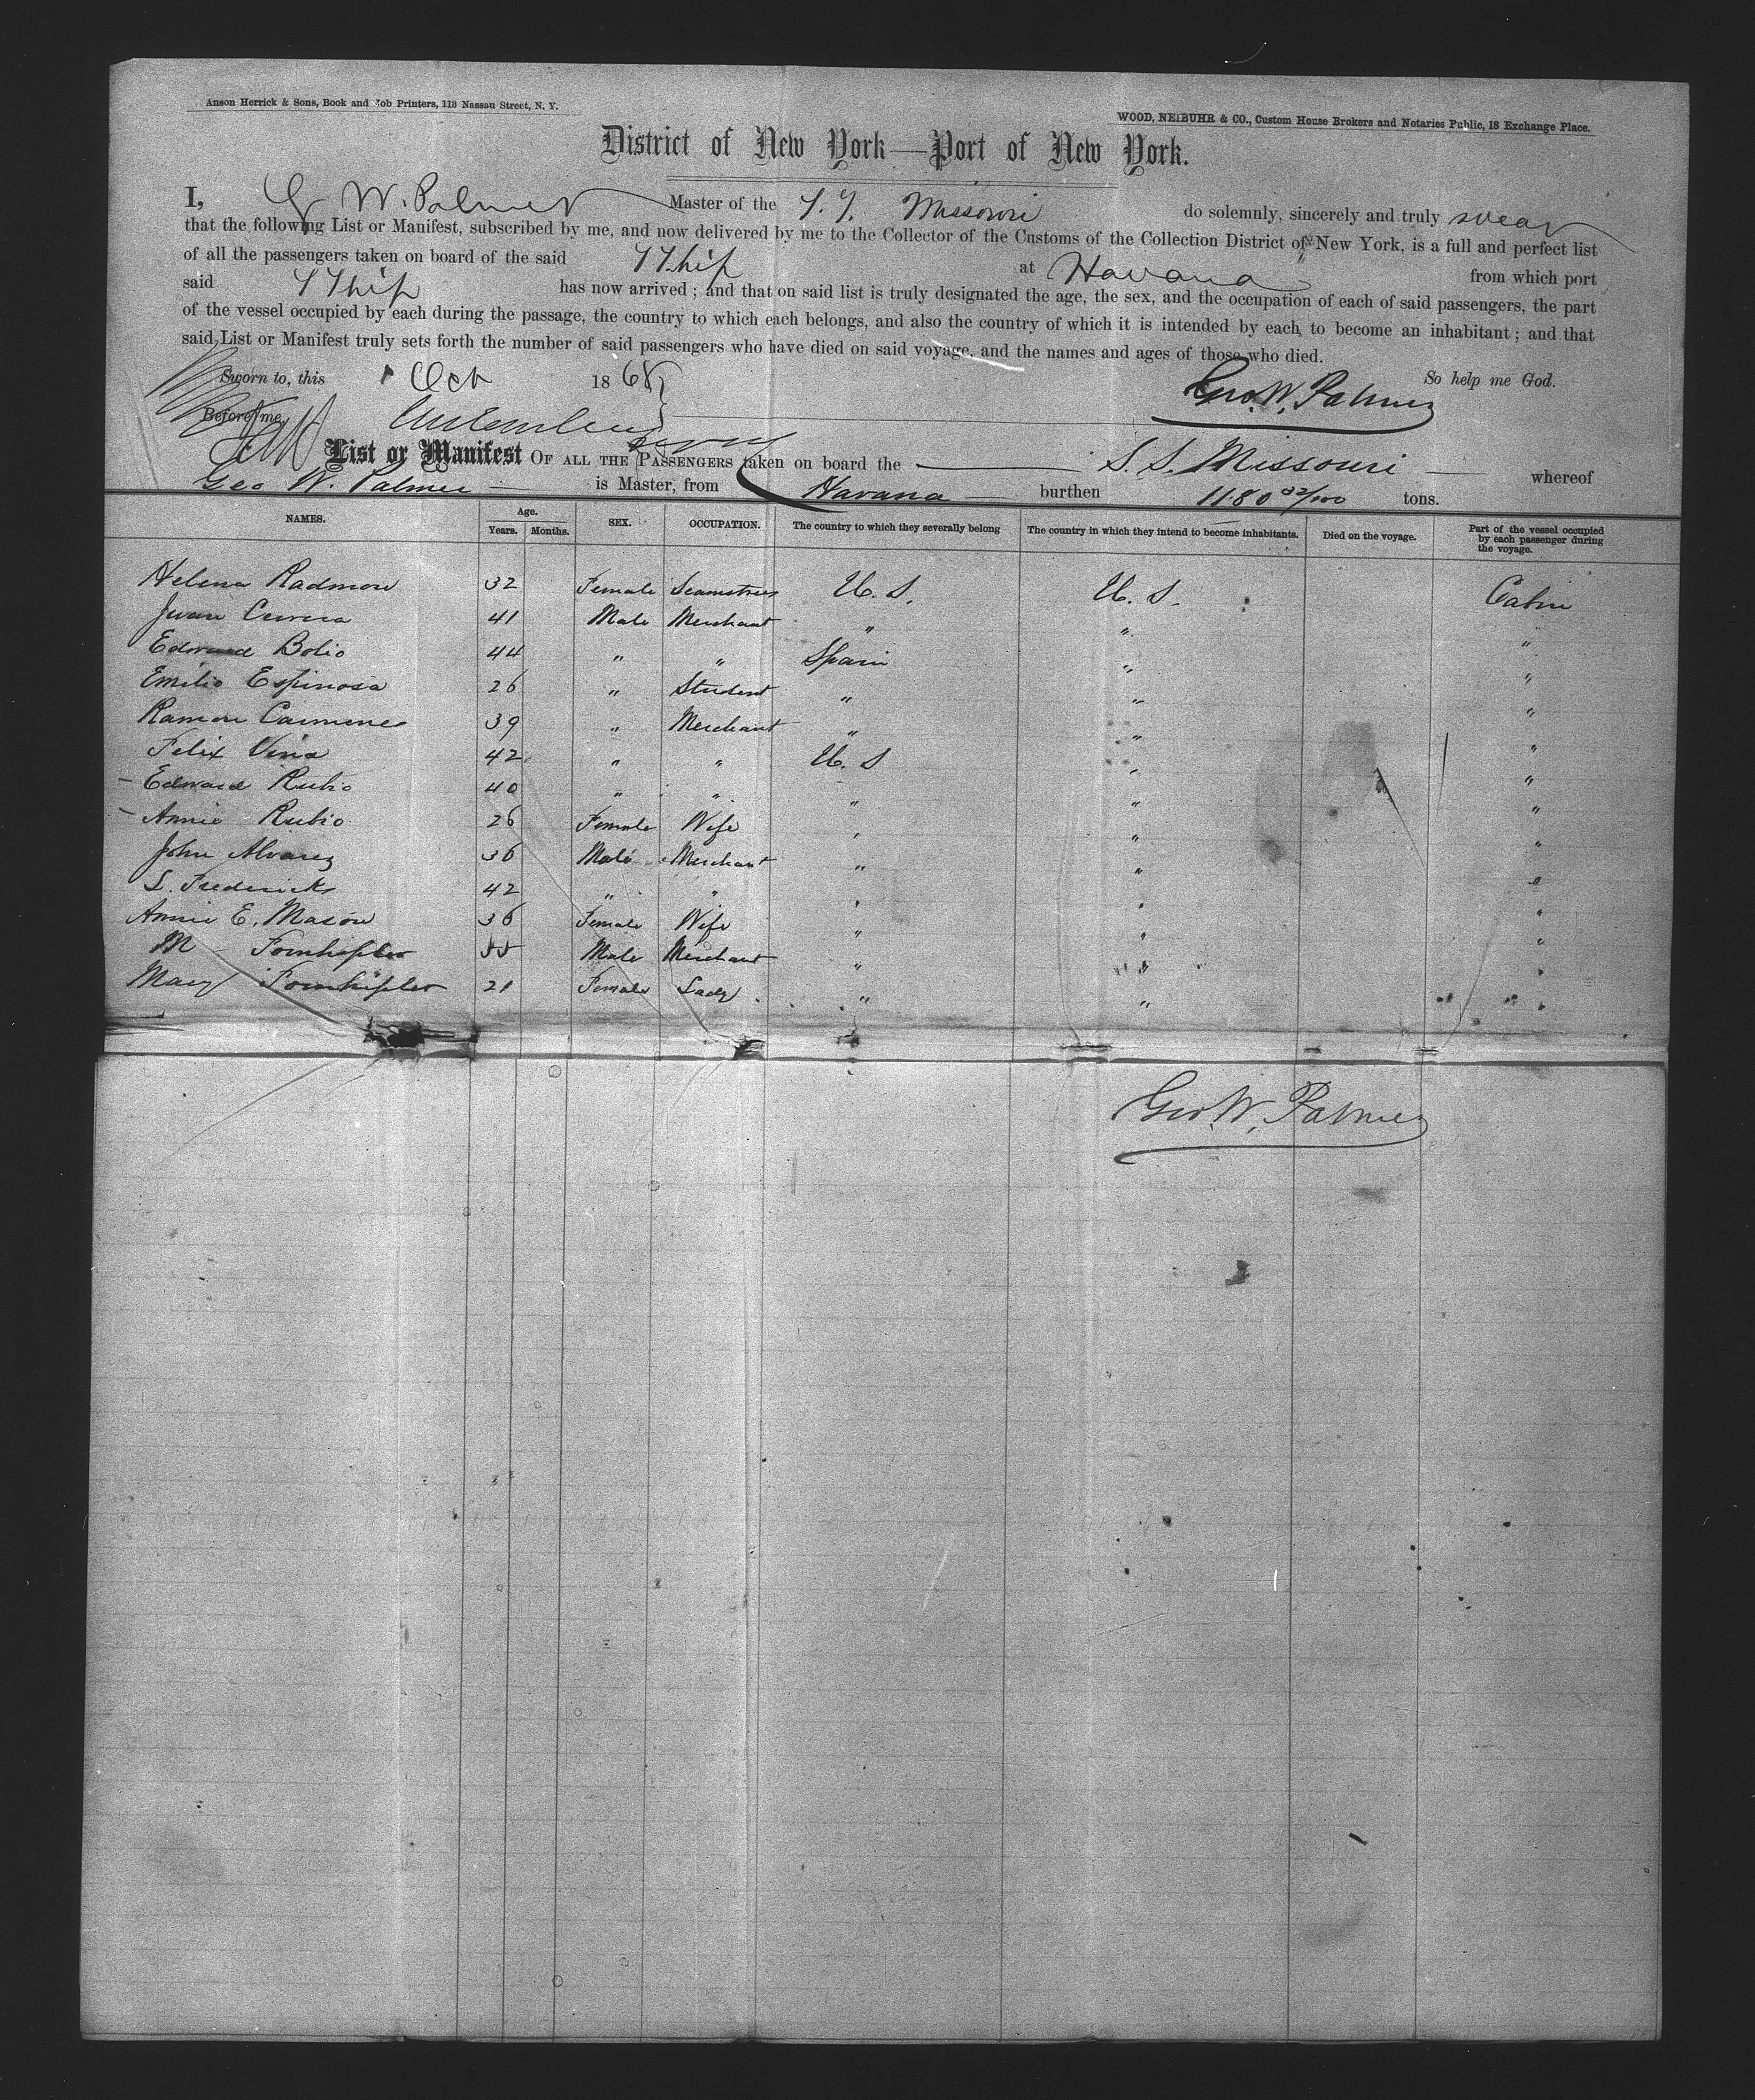 Anson Herrick & Sons, Book and Job Printers, 113 Nassau Street, N. Y.
WOOD, NEIBUHR & CO., Custom House Brokers and Notaries Public, 18 Exchange Place.
District of New York—Port of New York.
I, G W. Palmer Master of the S. S. Missouri do solemnly, sincerely and truly swear
that the following List or Manifest, subscribed by me, and now delivered by me to the Collector of the Customs of the Collection District of New York, is a full and perfect list
of all the passengers taken on board of the said SShip at Havana from which port
said SShip has now arrived; and that on said list is truly designated the age, the sex, and the occupation of each of said passengers, the part
of the vessel occupied by each during the passage, the country to which each belongs, and also the country of which it is intended by each to become an inhabitant; and that
said List or Manifest truly sets forth the number of said passengers who have died on said voyage, and the names and ages of those who died.
Sworn to, this Oct 1868 So help me God.
Geo. W. Palmer
Before me,
List or Manifest OF ALL THE PASSENGERS taken on board the S. S. Missouri whereof
Geo W. Palmer is Master, from Havana burthen 1180 tons.
NAMES. Age. Years. Months. SEX. OCCUPATION. The country to which they severally belong The country in which they intend to become inhabitants. Died on the voyage. Part of the vessel occupied by each passenger during the voyage.
Helena Radmore 32 Female Seamstress U. S. U. S. Cabin
Juan 41 Male Merchant " " "
Edward Bolio 44 " " Spain " "
Emilio Espinosa 26 " Student " " "
Ramon 39 " Merchant " " "
Felix Vina 42 " " U. S " "
Edward Rubio 40 " " " " "
Annie Rubio 26 Female Wife " " "
John Alvarez 36 Male Merchant " " "
L. Fredericks 42 " " " " "
Annie E. Mason 36 Female Wife " " "
M 55 Male Merchant " " "
Mary 21 Female Lady " " "
Geo. W. Palmer